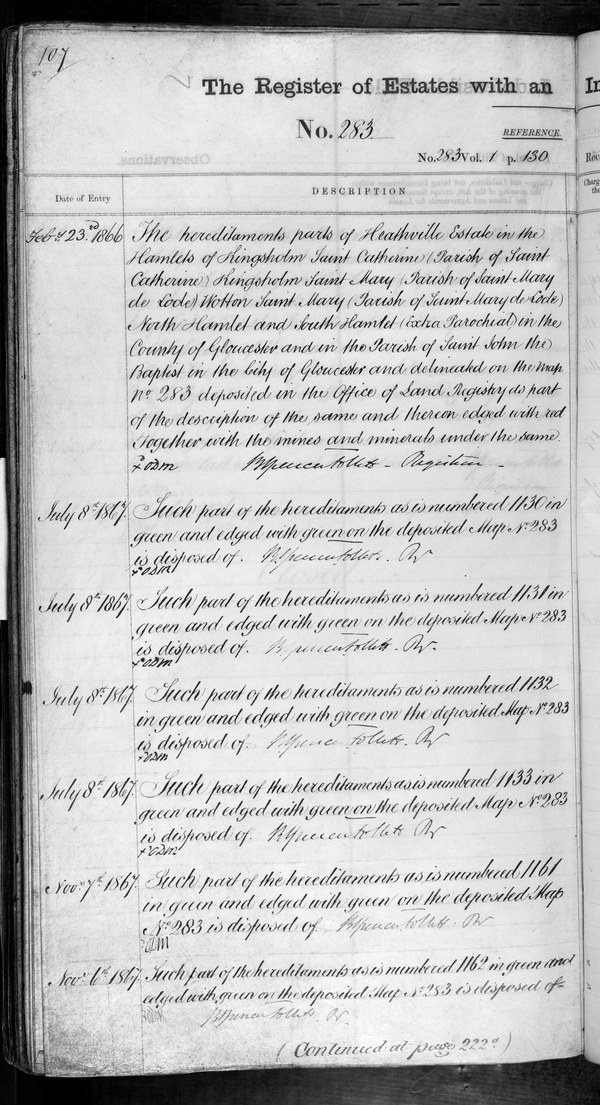 107
The Register of Estates with an
In
No. 283
REFERENCE.
No. 283 Vol. 1 p. 130
Date of Entry
DESCRIPTION
Feby 23rd 1866 The hereditaments parts of Heathville Estate in the
Hamlets of Kingsholm Saint Catherine (Parish of Saint
Catherine) Kingsholm Saint Mary (Parish of Saint Mary
de Lode) Wotton Saint Mary (Parish of Saint Mary de Lode)
North Hamlet and South Hamlet (Extra Parochial) in the
County of Gloucester and in the Parish of Saint John the
Baptist in the City of Gloucester and delineated on the map
No 283 deposited in the Office of Land Registry as part
of the description of the same and thereon edged with red
Together with the mines and minerals under the same.
B Spencer Follett - Registrar -
July 8th 1867. Such part of the hereditaments as is numbered 1130 in
green and edged with green on the deposited Map No 283
is disposed of. B Spencer Follett. Rr
July 8th 1867. Such part of the hereditaments as is numbered 1131 in
green and edged with green on the deposited Map No 283
is disposed of. B Spencer Follett. Rr.
July 8th 1867. Such part of the hereditaments as is numbered 1132
in green and edged with green on the deposited Map No 283
is disposed of. B Spencer Follett. Rr
July 8th 1867. Such part of the hereditaments as is numbered 1133 in
green and edged with green on the deposited Map No 283
is disposed of. B Spencer Follett Rr
Novr 7th 1867. Such part of the hereditaments as is numbered 1161
in green and edged with green on the deposited Map
No 283 is disposed of. B Spencer Follett. Rr
Novr 6th 1867. Such part of the hereditaments as is numbered 1162 in green and
edged with green on the deposited Map No 283 is disposed of
B Spencer Follett. Rr.
(Continued at page 222a)